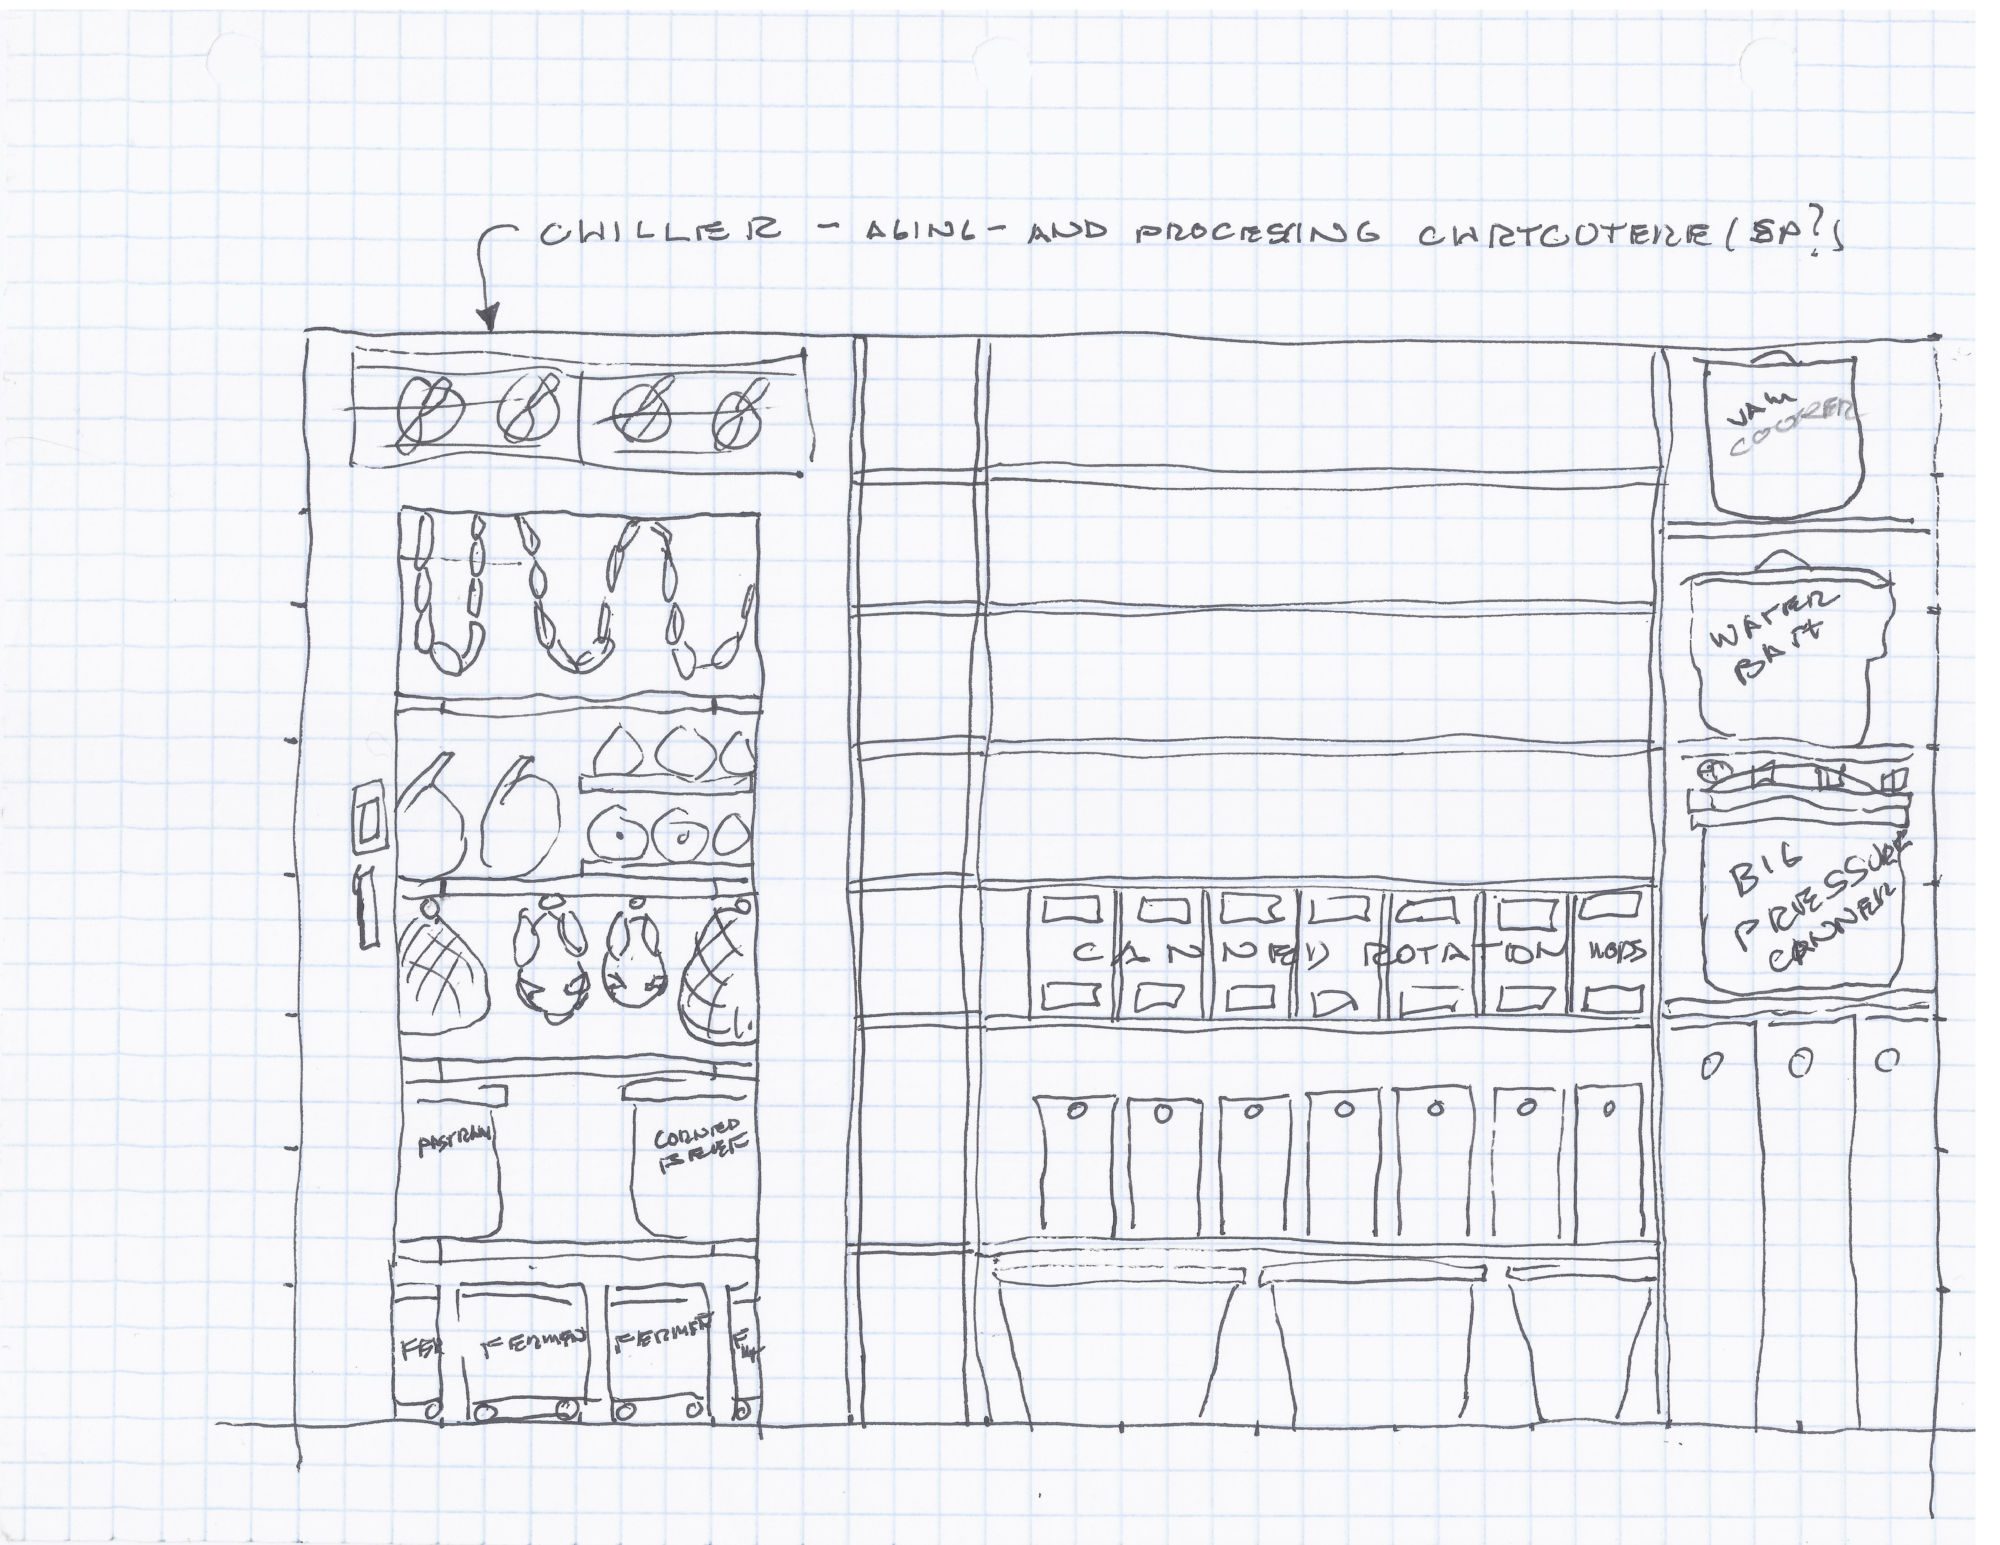 CHILLER - AGING - AND PROCESSING CHRTCUTERE (SP?)
JAM
COOKER
WATER
BATH
BIG
PRESSURE
CANNER
CANNED ROTATION MODS
PASTRAMI
CORNED
BEEF
FER FERMEN FERMEN